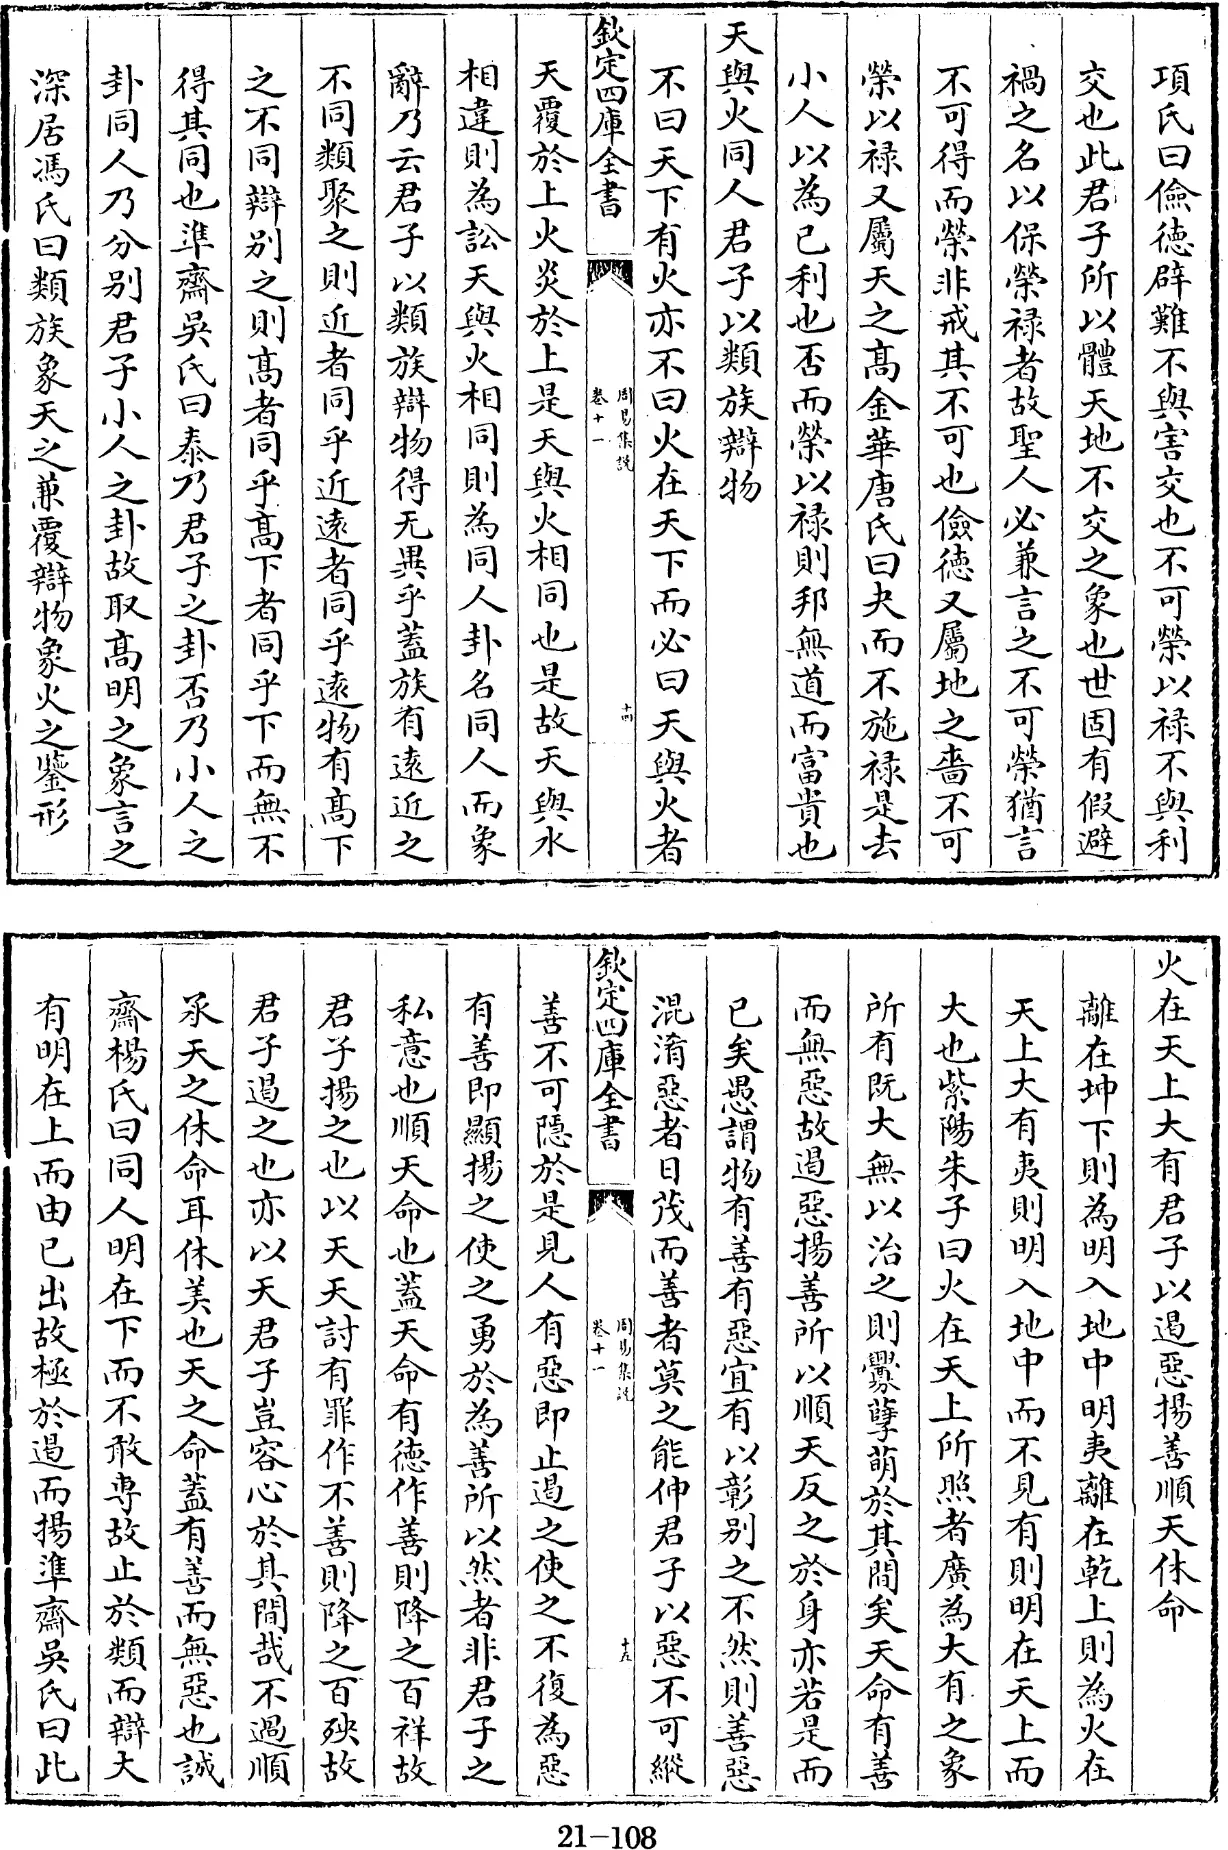 項氏曰儉德辟難不與害交也不可榮以祿不與利
交也此君子所以體天地不交之象也世固有假避
禍之名以保榮祿者故聖人必兼言之不可榮猶言
不可得而榮非戒其不可也儉徳又屬地之嗇不可
榮以祿又屬天之髙金華唐氏曰夬而不施祿是去
小人以為已利也否而榮以祿則邦無道而富貴也
天與火同人君子以類族辯物
不曰天下有火亦不曰火在天下而必曰天與火者
欽定四庫全書
周易集說
卷十一
十四
天覆於上火炎於上是天與火相同也是故天與水
相違則為訟天與火相同則為同人卦名同人而象
辭乃云君子以類族辯物得无異乎蓋族有逺近之
不同類聚之則近者同乎近逺者同乎逺物有髙下
之不同辯别之則髙者同乎髙下者同乎下而無不
得其同也準齋吳氏曰泰乃君子之卦否乃小人之
卦同人乃分别君子小人之卦故取髙明之象言之
深居馮氏曰類族象天之兼覆辯物象火之鑒形
火在天上大有君子以遏惡揚善順天休命
離在坤下則為明入地中明夷離在乾上則為火在
天上大有夷則明入地中而不見有則明在天上而
大也紫陽朱子曰火在天上所照者廣為大有之象
所有既大無以治之則釁孽萌於其間矣天命有善
而無惡故遏惡揚善所以順天反之於身亦若是而
已矣愚謂物有善有惡宜有以彰别之不然則善惡
混淆惡者日茂而善者莫之能伸君子以惡不可縱
欽定四庫全書
周易集說
卷十一
十五
善不可隱於是見人有惡即止遏之使之不復為惡
有善即顯揚之使之勇於為善所以然者非君子之
私意也順天命也蓋天命有徳作善則降之百祥故
君子揚之也以天天討有罪作不善則降之百殃故
君子遏之也亦以天君子豈容心於其間哉不過順
承天之休命耳休美也天之命蓋有善而無惡也誠
齋楊氏曰同人明在下而不敢専故止於類而辯大
有明在上而由已出故極於遏而揚準齋吳氏曰此
21-108